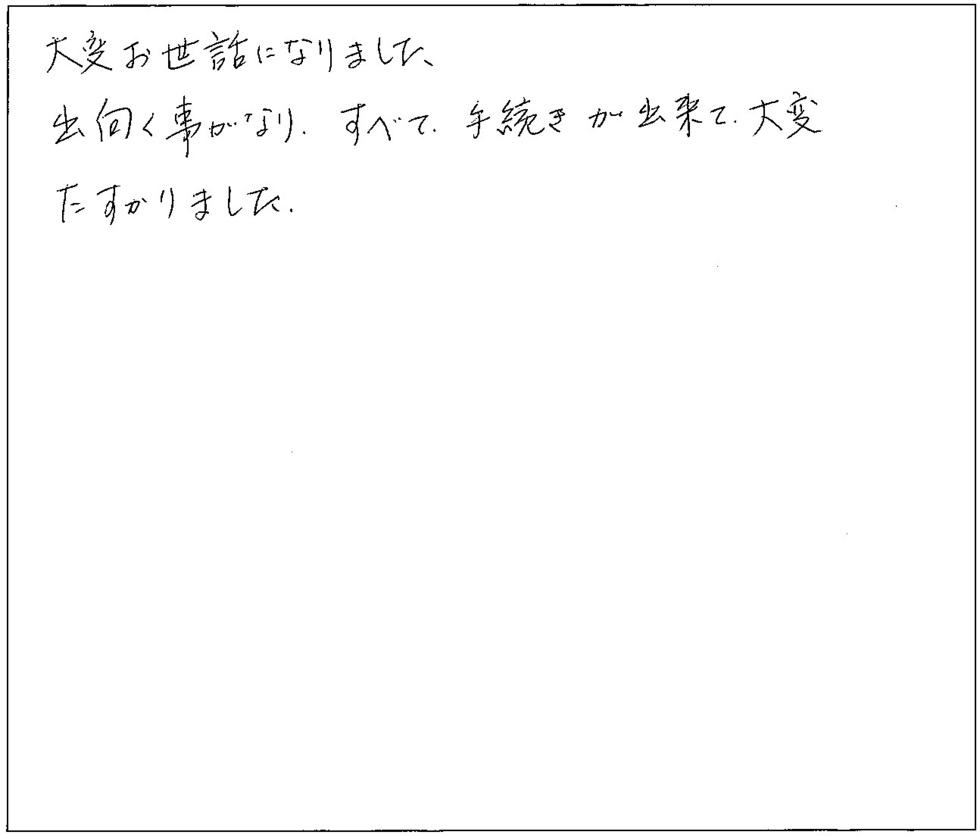 大変お世話になりました、
出向く事がなり、すべて、手続きが出来て、大変
たすかりました.